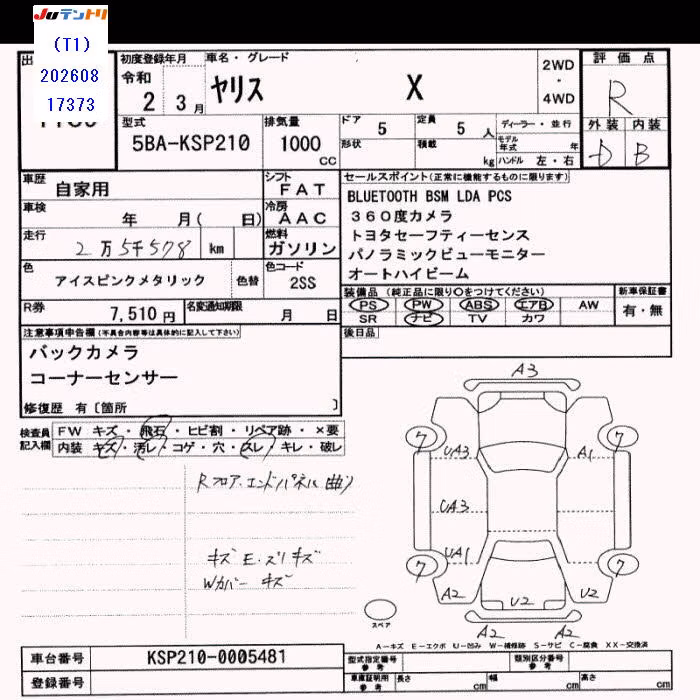 JUテントリ
(T1)
202608
17373
初度登録年月
令和
2 3月
車名・グレード
ヤリス X
2WD
・
4WD
評価点
R
外装 内装
D B
型式
5BA-KSP210
排気量
1000
CC
ドア
5
定員
5 人
ディーラー・並行
モデル年式 年
形状
積載
kg
ハンドル 左・右
車歴
自家用
シフト
FAT
車検
年 月( 日)
冷房
AAC
走行
2万5千578 km
燃料
ガソリン
色
アイスピンクメタリック
色替
色コード
2SS
R券
7,510円
名変通知期限
月 日
セールスポイント(正常に機能するものに限ります)
BLUETOOTH BSM LDA PCS
360度カメラ
トヨタセーフティーセンス
パノラミックビューモニター
オートハイビーム
装備品(純正品に限り○をつけてください)
PS PW ABS エアB AW
SR ナビ TV カワ
新車保証書
有・無
後日品
注意事項申告欄(不具合内容等は具体的に記入して下さい)
バックカメラ
コーナーセンサー
修復歴 有〔箇所 〕
検査員記入欄
FW キズ・飛石・ヒビ割・リペア跡・×要
内装 キズ・汚レ・コゲ・穴・スレ・キレ・破レ
Rフロア.エンドパネル曲り
キズE.ズリキズ
Wカバー キズ
A3
7 7
UA3 A1
UA3
UA1
7 7
A2 U2 U2
A2 A2
スペア
A-キズ E-エクボ U-凹み W-補修跡 S-サビ C-腐食 XX-交換済
車台番号
KSP210-0005481
登録番号
型式指定番号
参考
類別区分番号
参考
車庫証明用
参考
長さ cm
幅 cm
高さ cm